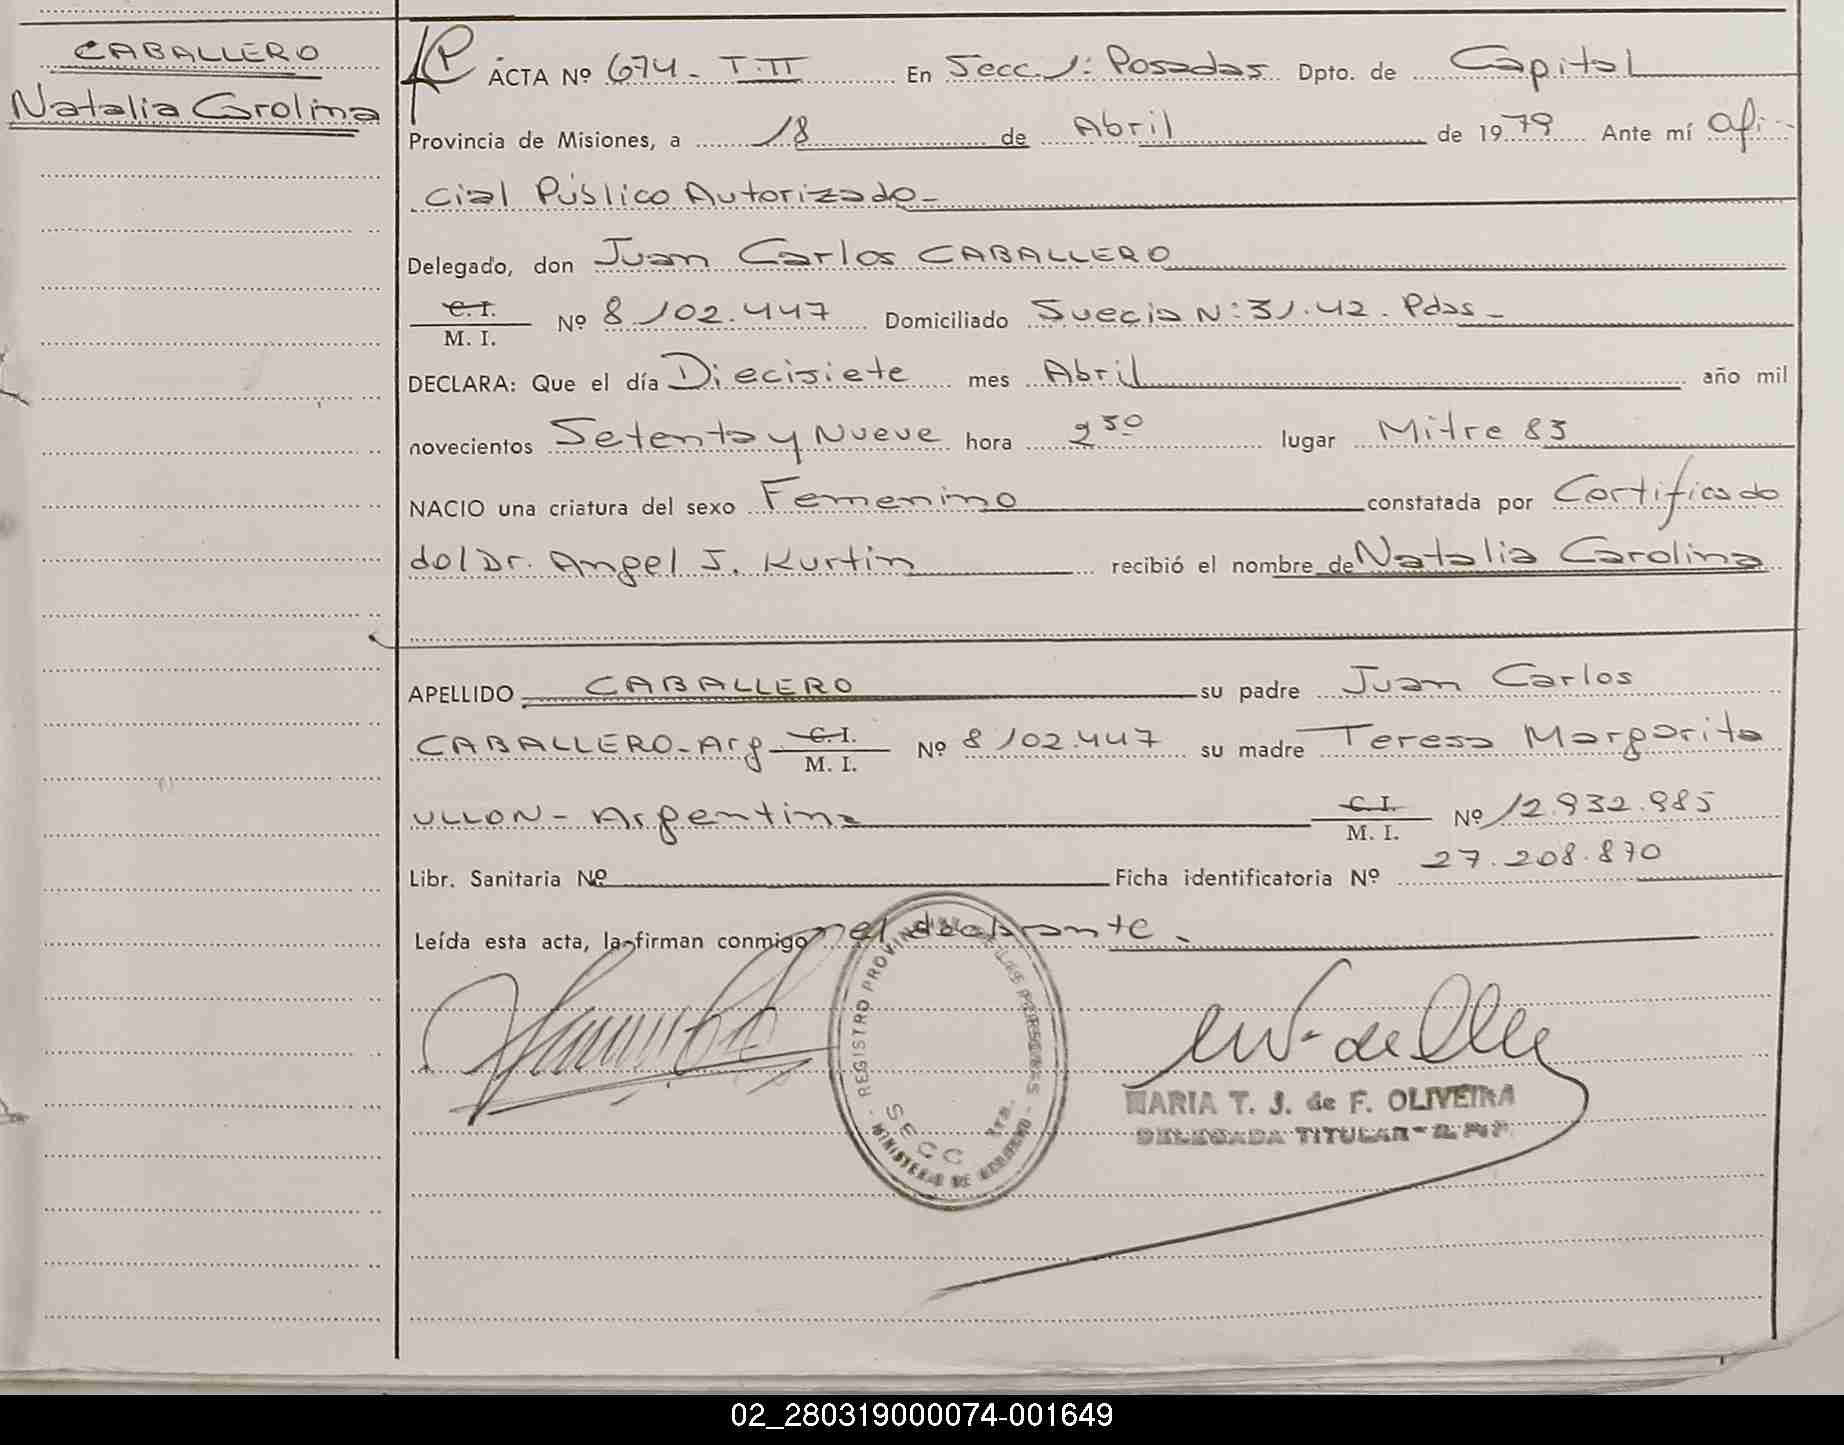 CABALLERO
Natalia Carolina
ACTA Nº 674 - T. II En Secc. 1: Posadas Dpto. de Capital
Provincia de Misiones, a 18 de Abril de 1979 Ante mí Ofi-
cial Público Autorizado-
Delegado, don Juan Carlos CABALLERO
C. I.
M. I. Nº 8.102.447 Domiciliado Suecia N: 31.42. Pdas-
DECLARA: Que el día Diecisiete mes Abril año mil
novecientos Setenta y Nueve hora 2 30 lugar Mitre 83
NACIO una criatura del sexo Femenino constatada por Certificado
del Dr. Angel J. Kurtin recibió el nombre de Natalia Carolina
APELLIDO CABALLERO su padre Juan Carlos
CABALLERO-Arg C. I.
M. I. Nº 8.102.447 su madre Teresa Margarita
ULLON - Argentina C. I.
M. I. Nº 12.932.985
Libr. Sanitaria Nº Ficha identificatoria Nº 27.208.870
Leída esta acta, la firman conmigo el declarante.
REGISTRO PROVINCIAL DE LAS PERSONAS
SECC 1ra.
MINISTERIO DE GOBIERNO
MARIA T. J. de F. OLIVEIRA
DELEGADA TITULAR - R. P. P.
02_280319000074-001649